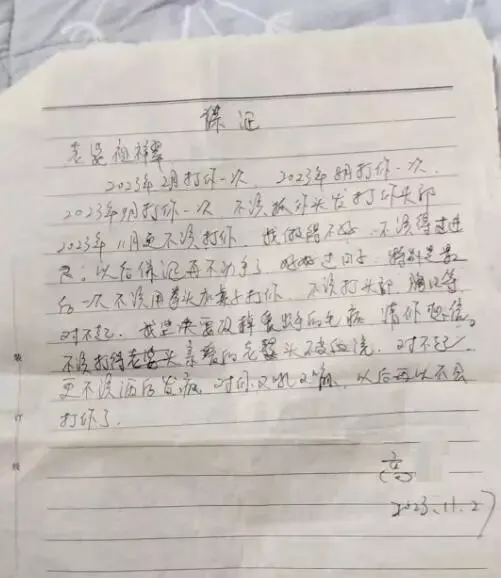 保证
老婆祖祥翠
2023年2月打你一次、2023年8月打你一次、
2023年9月打你一次、不该抓你头发打你头部
2023年11月更不该打你、我做得不好、不该得过进
尺；以后保证再不动手了 好好过日子、特别是最
后一次不该用拳头加打你、不该打头部、胸口等
对不起、我坚决要改掉的毛病 请你
不该打得老婆头 老婆头、对不起
更不该酒后发疯、对你又吼又、以后再以不会
打你了.
高
2023.11.27
装
订
线